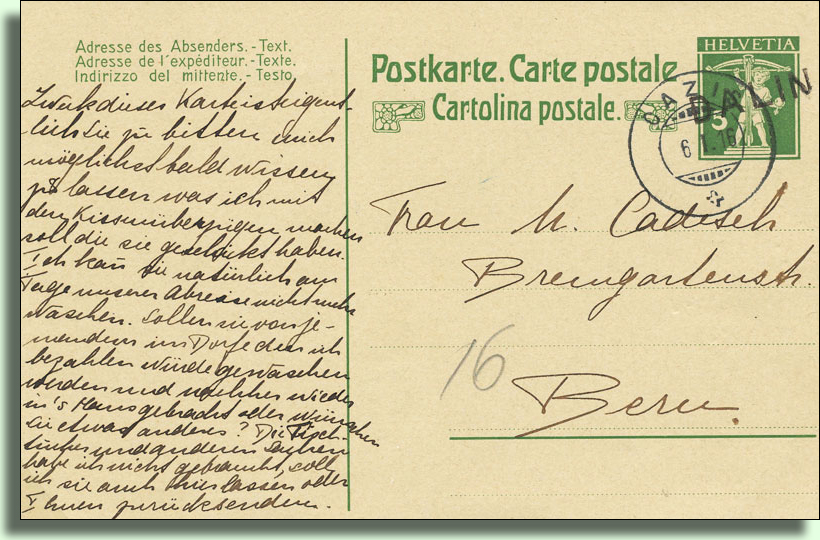 Adresse des Absenders. - Text.
Adresse de l'expéditeur. - Texte.
Indirizzo del mittente. - Testo.
Zweck dieser Karte ist eigent-
lich Sie zu bitten mich
möglichst bald wissen
zu lassen was ich mit
den Kissenüberzügen machen
soll die sie geschickt haben.
Ich kann sie natürlich am
Tage unserer Abreise nicht mehr
waschen. Sollen sie von je-
mandem im Dorfe den ich
bezahlen würde gewaschen
werden und welcher wieder
in's Haus gebracht oder wünschen
Sie etwas anderes? Die Tisch-
tücher und anderen Sachen
habe ich nicht gebraucht, soll
ich sie auch hier lassen oder
Ihnen zurücksenden.
Postkarte. Carte postale
Cartolina postale.
HELVETIA
5
CAZIS
DALIN
6 I. 16
Frau M. Cadisch
Bremgartenstr.
16
Bern.